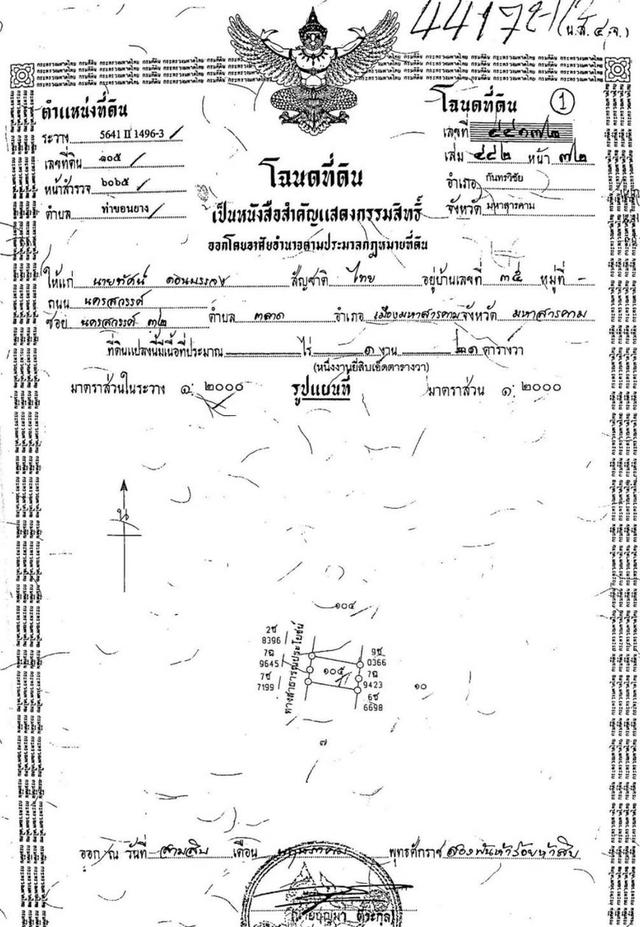 44172
(น.ส.๔ จ.)
ตำแหน่งที่ดิน
ระวาง 5641 II 1496-3
เลขที่ดิน ๑๐๕
หน้าสำรวจ ๖๐๖๕
ตำบล ท่าขอนยาง
โฉนดที่ดิน ๑
เลขที่ ๔๔๑๗๒
เล่ม ๔๔๒ หน้า ๗๒
อำเภอ กันทรวิชัย
จังหวัด มหาสารคาม
โฉนดที่ดิน
เป็นหนังสือสำคัญแสดงกรรมสิทธิ์
ออกโดยอาศัยอำนาจตามประมวลกฎหมายที่ดิน
ให้แก่ นายทัศน์ สัญชาติ ไทย อยู่บ้านเลขที่ ๓๕ หมู่ที่ -
ถนน นครสวรรค์
ซอย นครสวรรค์ ๓๒ ตำบล ตลาด อำเภอ เมืองมหาสารคาม จังหวัด มหาสารคาม
ที่ดินแปลงนี้มีเนื้อที่ประมาณ ไร่ ๑ งาน ๒๑ ตารางวา
(หนึ่งงานยี่สิบเอ็ดตารางวา)
มาตราส่วนในระวาง ๑: ๒๐๐๐ รูปแผนที่ มาตราส่วน ๑: ๒๐๐๐
น
๑๐๔
2ช
8396
7ฉ
9645
7ช
7199
ทางสาธารณประโยชน์
๑๐๕
9ช
0366
7ฉ
9423
6ช
6698
๑๐
๗
ออก ณ วันที่ สามสิบ เดือน พฤษภาคม พุทธศักราช สองพันห้าร้อยห้าสิบ